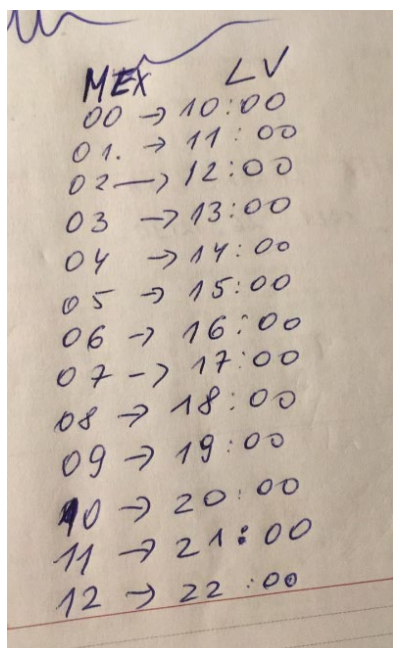 MEX LV
00 → 10:00
01. → 11:00
02 → 12:00
03 → 13:00
04 → 14:00
05 → 15:00
06 → 16:00
07 → 17:00
08 → 18:00
09 → 19:00
10 → 20:00
11 → 21:00
12 → 22:00